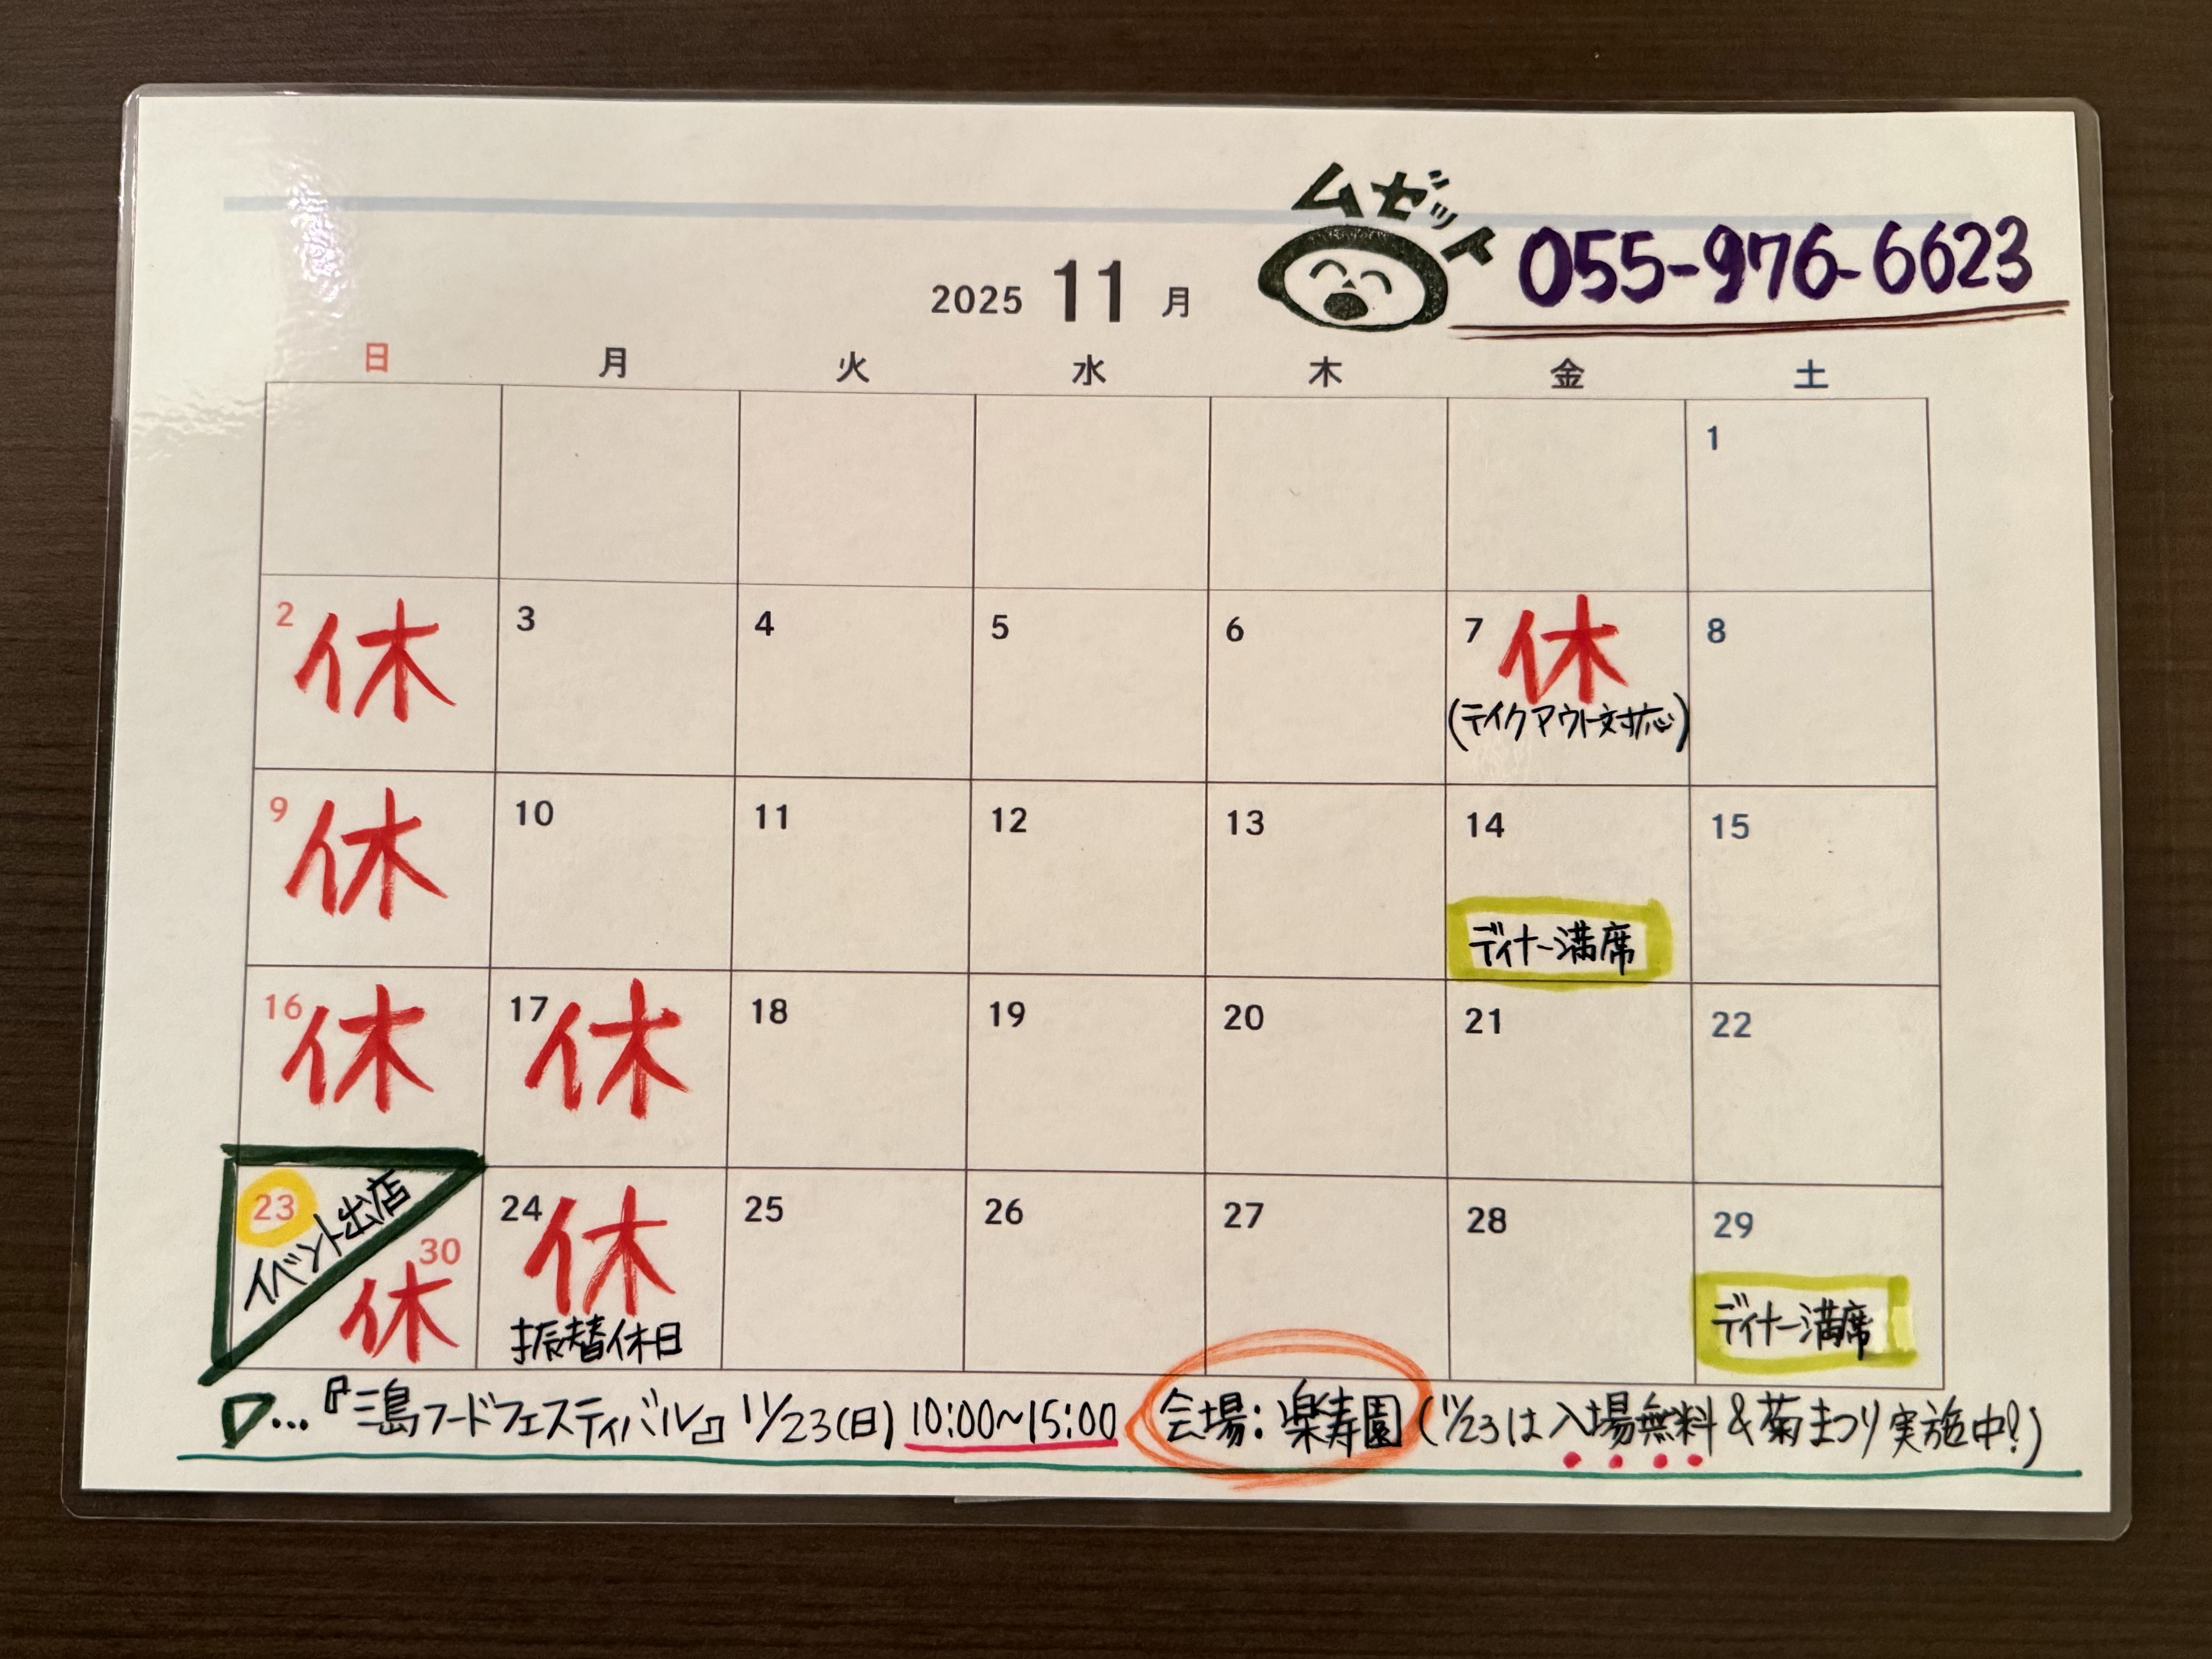 ムゼット
055-976-6623
2025 11 月
日 月 火 水 木 金 土
1
2 休 3 4 5 6 7 休 8
(テイクアウト対応)
9 休 10 11 12 13 14 15
ディナー満席
16 休 17 休 18 19 20 21 22
23 イベント出店 30 休 24 休 25 26 27 28 29
振替休日 ディナー満席
…『三島フードフェスティバル』11/23(日) 10:00~15:00 会場:楽寿園(11/23は入場無料&菊まつり実施中!)